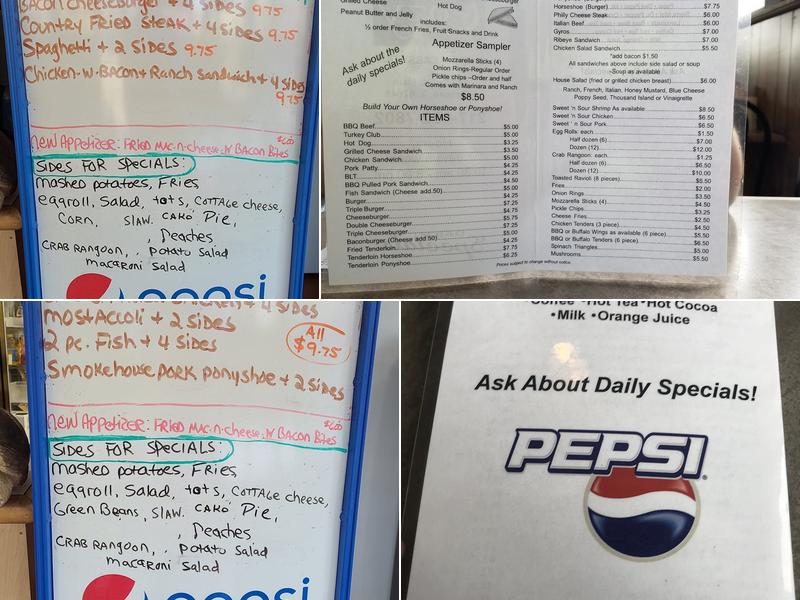 Bacon cheeseburger + 4 sides 9.75
Country Fried Steak + 4 sides 9.75
Spaghetti + 2 sides 9.75
Chicken-w-Bacon + Ranch sandwich + 4 sides
9.75
new Appetizer: Fried mac-n-cheese-w Bacon Bites $6.00
Sides For Specials:
mashed potatoes, Fries
eggroll, Salad, tots, cottage cheese,
Corn, slaw, cake Pie,
, Peaches
Crab Rangoon, , potato Salad
macaroni salad
pepsi
Grilled Cheese
Hot Dog
Peanut Butter and Jelly
includes:
½ order French Fries, Fruit Snacks and Drink
Ask about the
daily specials!
Appetizer Sampler
Mozzarella Sticks (4)
Onion Rings-Regular Order
Pickle chips –Order and half
Comes with Marinara and Ranch
$8.50
Build Your Own Horseshoe or Ponyshoe!
ITEMS
BBQ Beef $5.00
Turkey Club $5.00
Hot Dog $3.25
Grilled Cheese Sandwich $3.50
Chicken Sandwich $5.00
Pork Patty $4.25
BLT $4.25
BBQ Pulled Pork Sandwich $4.50
Fish Sandwich (Cheese add.50) $5.00
Burger $4.25
Triple Burger $7.25
Cheeseburger $4.75
Double Cheeseburger $5.75
Triple Cheeseburger $7.25
Baconburger (Cheese add.50) $5.25
Fried Tenderloin $4.25
Tenderloin Horseshoe $7.75
Tenderloin Ponyshoe $6.25
Horseshoe (Burger) $7.75
Philly Cheese Steak $6.00
Italian Beef $6.00
Gyros $7.00
Ribeye Sandwich $7.00
Chicken Salad Sandwich $5.50
*add bacon $1.50
All sandwiches above include side salad or soup
~Soup as available
House Salad (fried or grilled chicken breast) $6.00
Ranch, French, Italian, Honey Mustard, Blue Cheese
Poppy Seed, Thousand Island or Vinaigrette
Sweet 'n Sour Shrimp As available $8.50
Sweet 'n Sour Chicken $6.50
Sweet 'n Sour Pork $6.50
Egg Rolls: each $1.50
Half dozen (6) $7.00
Dozen (12) $12.00
Crab Rangoon: each $1.25
Half dozen (6) $6.50
Dozen (12) $10.00
Toasted Ravioli (8 pieces) $5.50
Fries $2.00
Onion Rings $3.50
Mozzarella Sticks (4) $4.50
Pickle Chips $3.25
Cheese Fries $2.50
Chicken Tenders (3 piece) $4.50
BBQ or Buffalo Wings as available (6 piece) $5.50
BBQ or Buffalo Tenders (6 piece) $6.50
Spinach Triangles $5.00
Mushrooms $5.50
Prices subject to change without notice.
+ 4 sides
mostaccoli + 2 sides
2 pc. Fish + 4 sides
All
$9.75
Smokehouse pork ponyshoe + 2 sides
new Appetizer: Fried mac-n-cheese-w Bacon Bites $6.00
Sides For Specials:
mashed potatoes, Fries
eggroll, Salad, tots, cottage cheese,
Green Beans, slaw, cake Pie,
, Peaches
Crab Rangoon, , potato Salad
macaroni salad
pepsi
Coffee •Hot Tea •Hot Cocoa
•Milk •Orange Juice
Ask About Daily Specials!
PEPSI